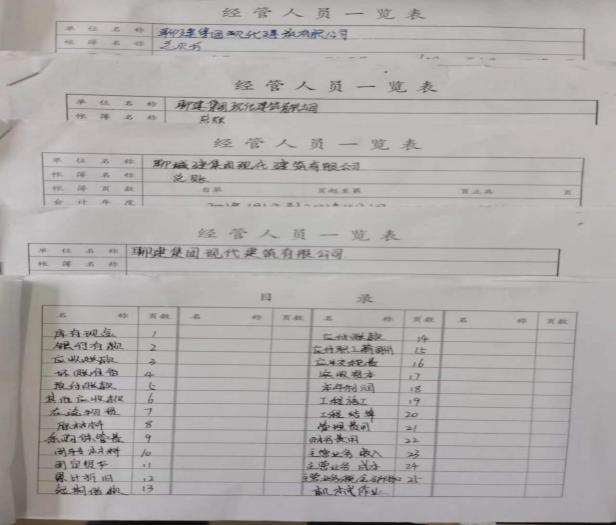 经管人员一览表
单位名称 聊建集团现代建筑有限公司
帐簿名称 总账
经管人员一览表
单位名称 聊建集团现代建筑有限公司
帐簿名称 总账
经管人员一览表
单位名称 聊城建集团现代建筑有限公司
帐簿名称 总账
帐簿页数 自第 页起至第 页止共 页
会计年度
经管人员一览表
单位名称 聊建集团现代建筑有限公司
帐簿名称
目录
名称 页数 名称 页数 名称 页数 名称 页数
库存现金 1 应付账款 14
银行存款 2 应付职工薪酬 15
应收账款 3 应交税费 16
坏账准备 4 实收资本 17
预付账款 5 本年利润 18
其他应收款 6 工程施工 19
在途物资 7 工程结算 20
原材料 8 管理费用 21
采购保管费 9 财务费用 22
周转材料 10 主营业务收入 23
固定资产 11 主营业务成本 24
累计折旧 12 主营业务税金及附加 25
短期借款 13 机械作业